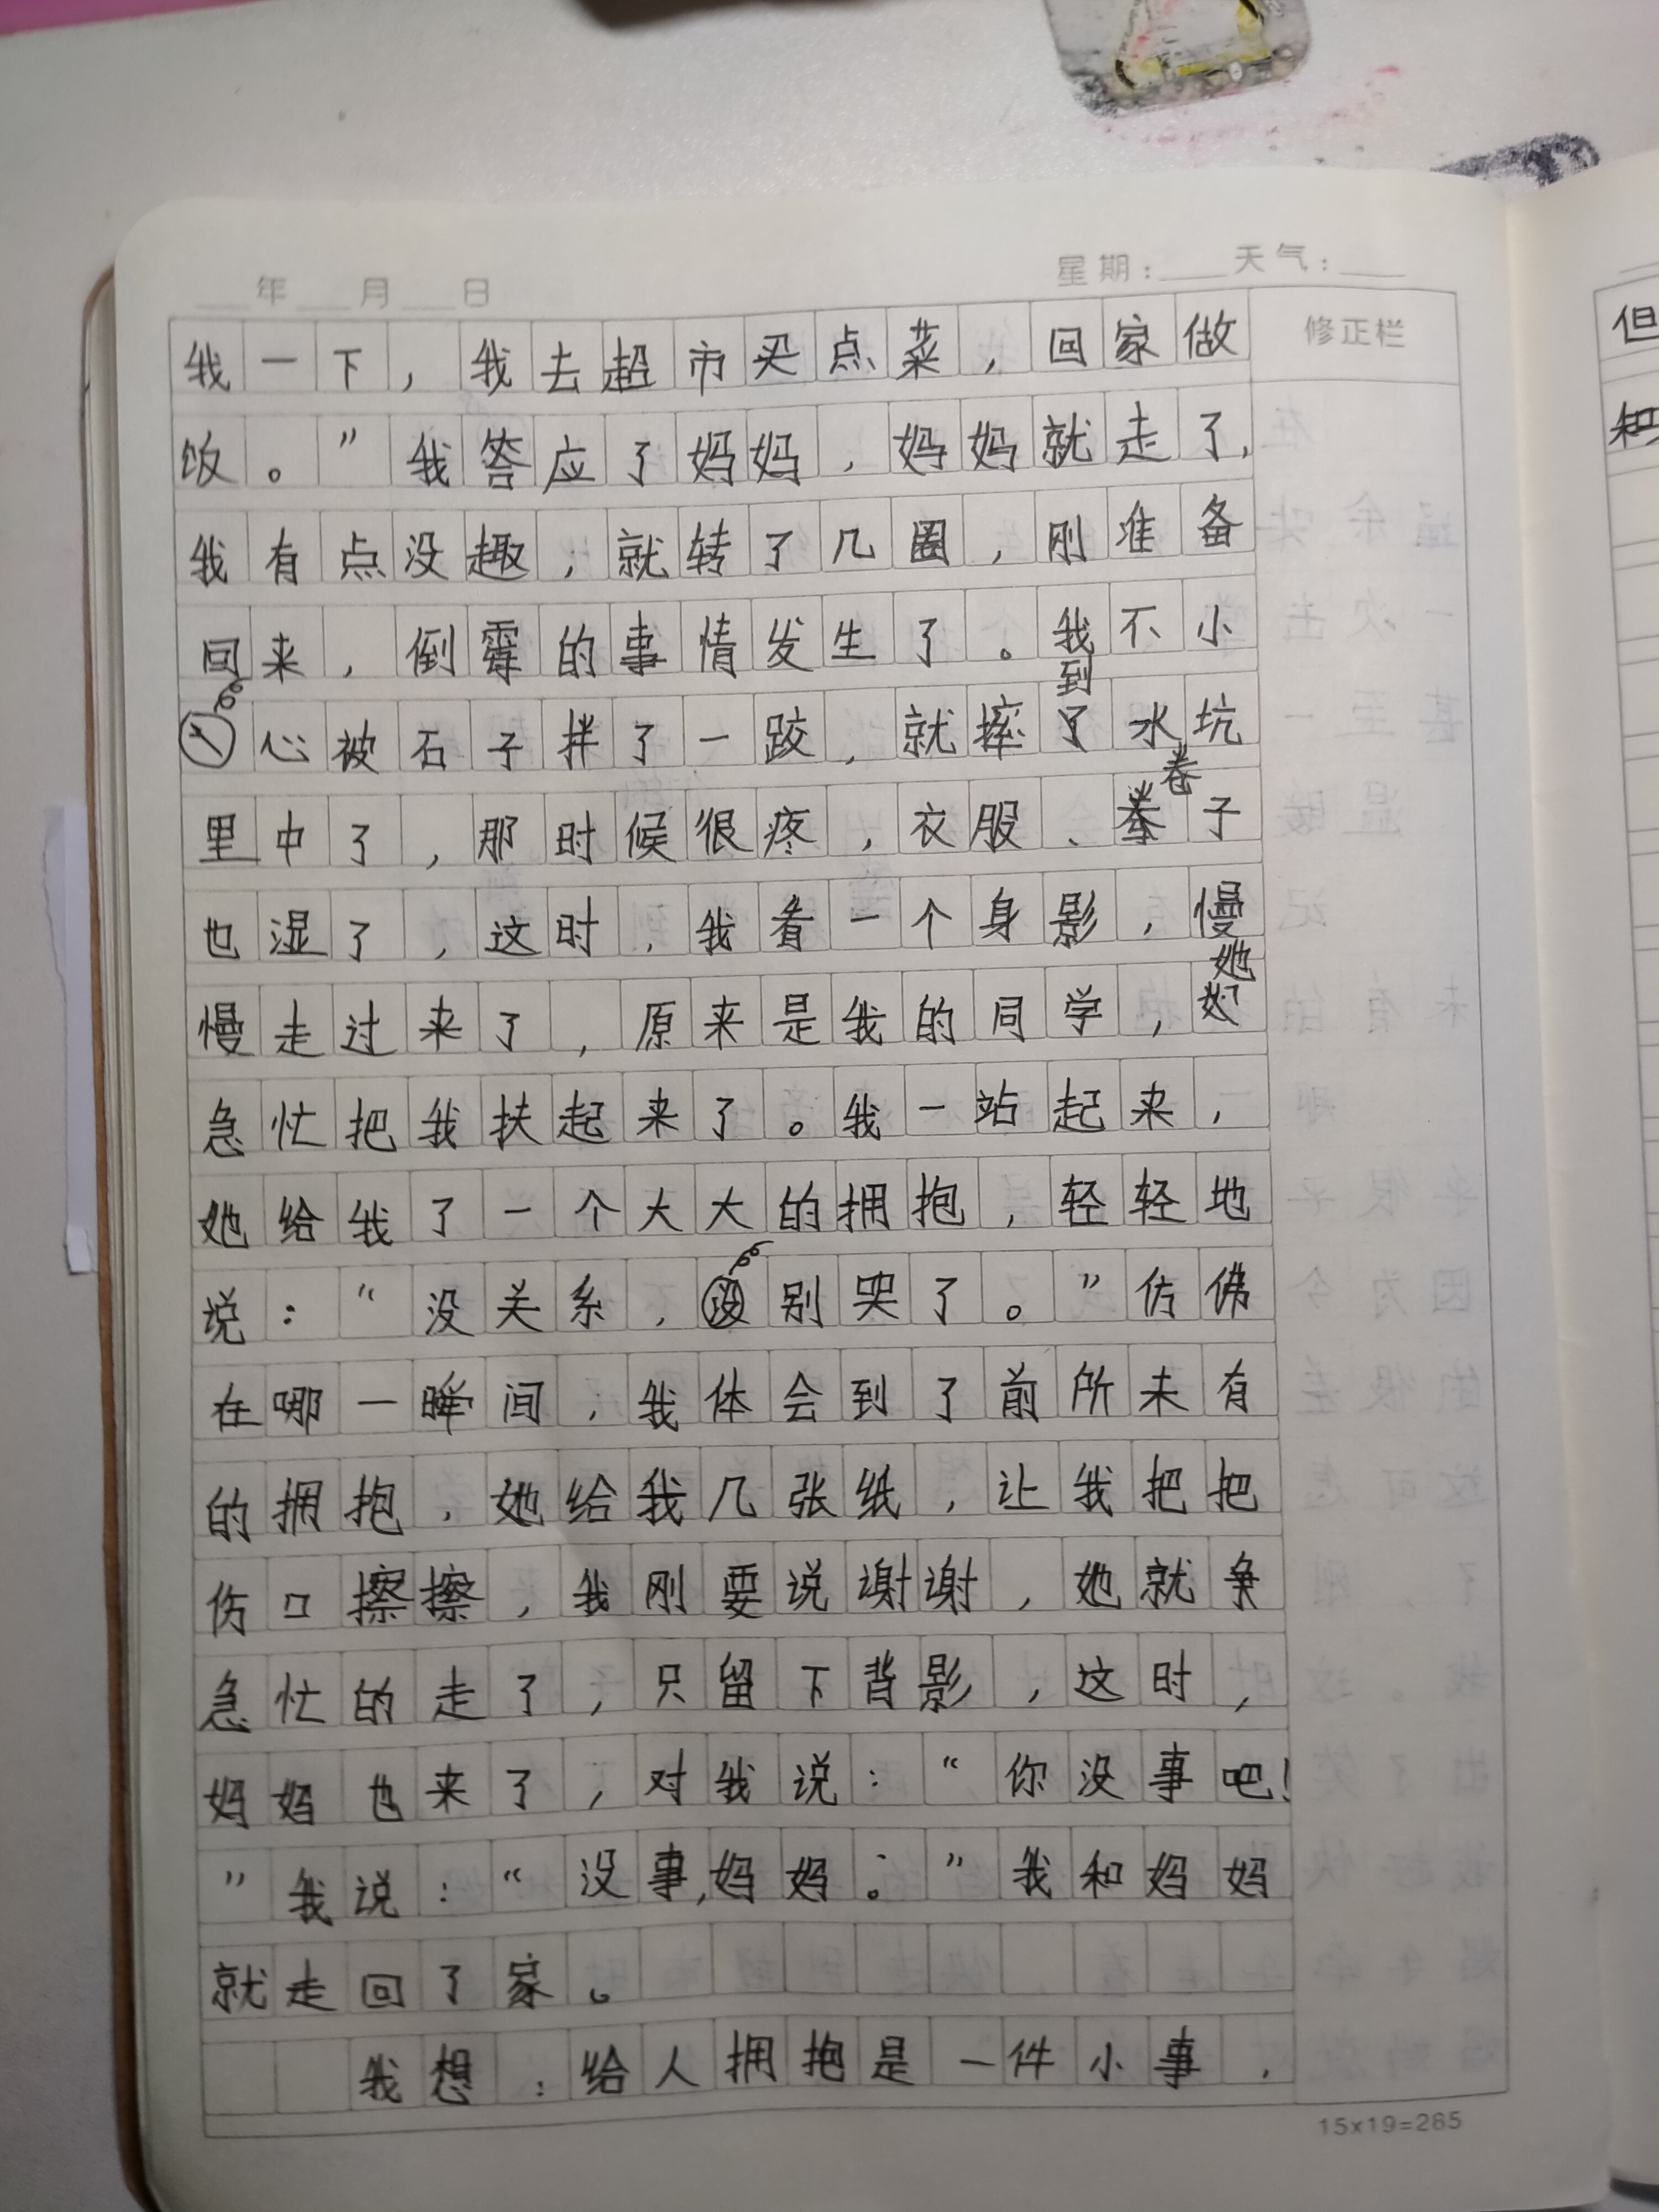 ___年___月___日 星期:____天气:____
修正栏
我一下，我去超市买点菜，回家做
饭。”我答应了妈妈，妈妈就走了，
我有点没趣，就转了几圈，刚准备
回来，倒霉的事情发生了。我不小
心被石子拌了一跤，就摔到水坑
里中了，那时候很疼，衣服、卷子
也湿了，这时，我看一个身影，慢
慢走过来了，原来是我的同学，她
急忙把我扶起来了。我一站起来，
她给我了一个大大的拥抱，轻轻地
说：“没关系，别哭了。”仿佛
在哪一瞬间，我体会到了前所未有
的拥抱，她给我几张纸，让我把把
伤口擦擦，我刚要说谢谢，她就争
急忙的走了，只留下背影，这时，
妈妈也来了，对我说：“你没事吧！
”我说：“没事，妈妈。”我和妈妈
就走回了家。
我想：给人拥抱是一件小事，
15x19=285
但